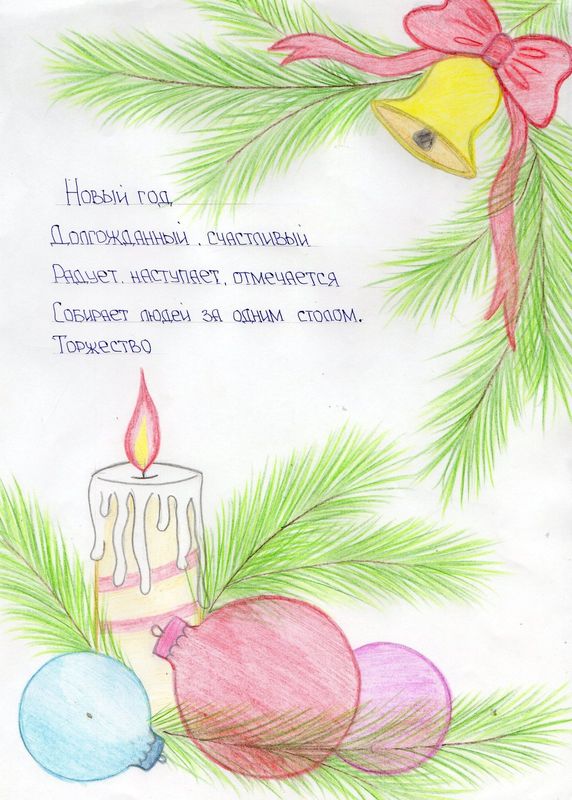 Новый год
Долгожданный, счастливый
Радует, наступает, отмечается
Собирает людей за одним столом.
Торжество